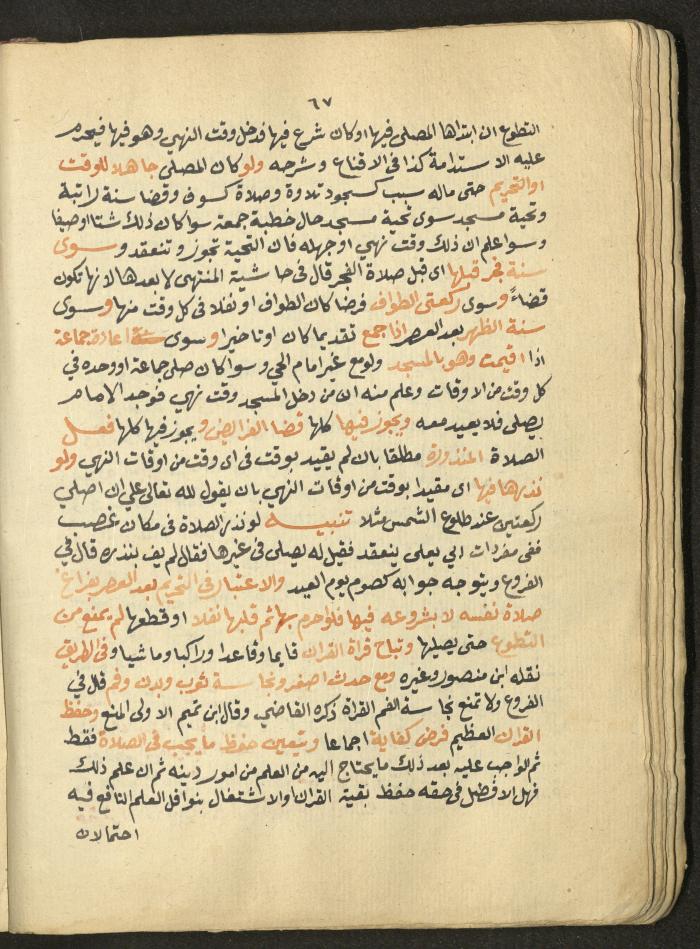 ٦٧
التطوع ان ابتداها المصلي فيها او كان شرع فيها فدخل وقت النهي وهو فيها فيحرم
عليه الاستدامة كذا في الاقناع وشرحه ولو كان المصلي جاهلا للوقت
او التحريم حتى ماله سبب كسجود تلاوة وصلاة كسوف وقضا سنة راتبة
وتحية مسجد سوى تحية مسجد حال خطبة جمعة سوا كان ذلك شتا او صيفا
وسوا علم ان ذلك وقت نهي او جهله فان التحية تجوز وتنعقد وسوى
سنة فجر قبلها اى قبل صلاة الفجر قال في حاشية المنتهى لا بعدها لانها تكون
قضاءً وسوى ركعتى الطواف فرضا كان الطواف او نفلا في كل وقت منها وسوى
سنة الظهر بعد العصر اذا جمع تقديما كان او تاخيرا وسوى اعادة جماعة
اذا اقيمت وهو بالمسجد ولو مع غير امام الحي وسوا كان صلى جماعة او وحده في
كل وقت من الاوقات وعلم منه ان من دخل المسجد وقت نهي فوجد الامام
يصلى فلا يعيد معه ويجوز فيها كلها قضا الفرائض ويجوز فيها كلها فعل
الصلاة المنذورة مطلقا بان لم يقيد بوقت في اى وقت من اوقات النهي ولو
نذرها فيها اى مقيدا بوقت من اوقات النهي بان يقول لله تعالى علي ان اصلي
ركعتين عند طلوع الشمس مثلا تنبيه لو نذر الصلاة في مكان غصب
ففي مفردات ابي يعلى ينعقد فقيل له يصلي في غيرها فقال لم يف بنذره قال في
الفروع ويتوجه جوابه كصوم يوم العيد والاعتبار في التحريم بعد العصر بفراغ
صلاة نفسه لا بشروعه فيها فلو احرم بها ثم قلبها نفلا او قطعها لم يمنع من
التطوع حتى يصليها وتباح قراة القران قايما وقاعدا وراكبا وماشيا وفى الطريق
نقله ابن منصور وغيره ومع حدث اصغر ونجاسة ثوب وبدن وفم قال في
الفروع ولا تمنع نجاسة الفم القراة ذكره القاضي وقال ابن تميم الاولى المنع وحفظ
القران العظيم فرض كفاية اجماعا ويتعين حفظ ما يجب في الصلاة فقط
ثم الواجب عليه بعد ذلك ما يحتاج اليه من العلم من امور دينه ثم ان علم ذلك
فهل الافضل في حقه حفظ بقية القران او الاشتغال بنوافل العلم النافع فيه
احتمالان